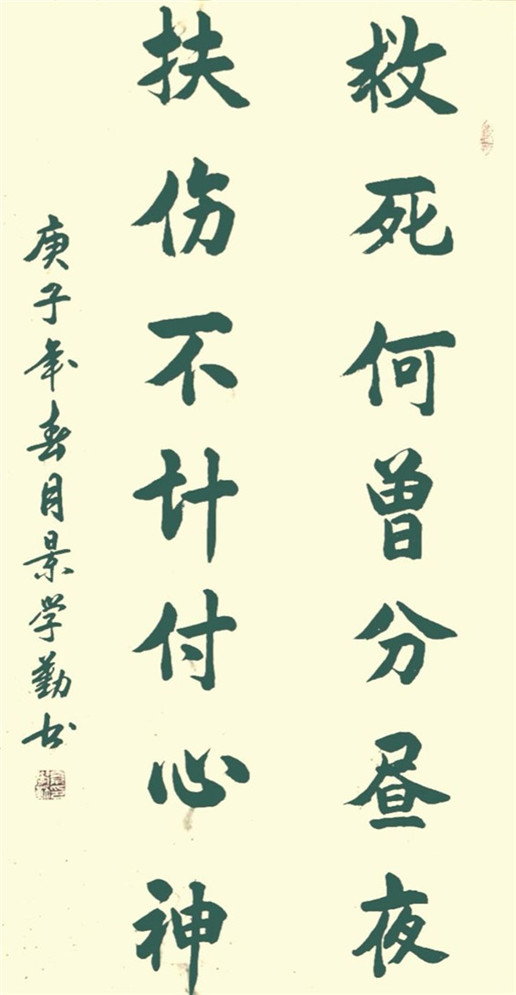 救死何曾分昼夜
扶伤不计付心神
庚子年春月景学勤书